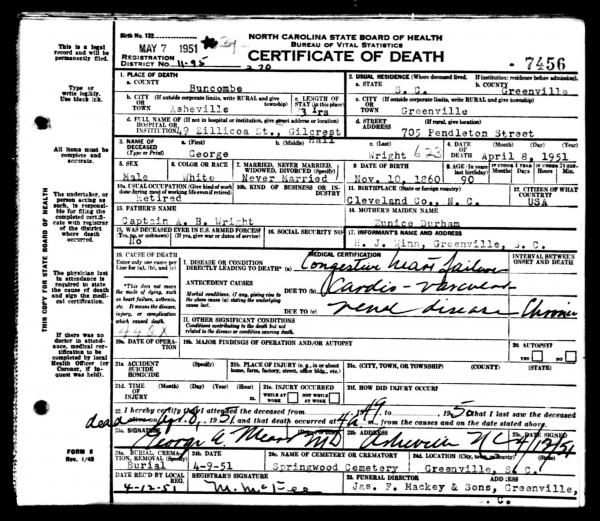 Birth No. 132
MAY 7 1951
NORTH CAROLINA STATE BOARD OF HEALTH
BUREAU OF VITAL STATISTICS
CERTIFICATE OF DEATH
REGISTRATION DISTRICT NO. 11-95
- 7456
This is a legal record and will be permanently filed.
Type or write legibly. Use black ink.
All items must be complete and accurate.
The undertaker, or person acting as such, is responsible for filing the completed certificate with registrar of the district where death occurred.
The physician last in attendance is required to state the cause of death and sign the medical certification.
If there was no doctor in attendance, medical certification to be completed by local Health Officer (or Coroner, if inquest was held).
THIS COPY FOR STATE BOARD OF HEALTH
FORM 8
Rev. 1/49
1. PLACE OF DEATH
a. COUNTY Buncombe
b. CITY OR TOWN (If outside corporate limits, write RURAL and give township) Asheville
c. LENGTH OF STAY (in this place) 3 Yrs
d. FULL NAME OF HOSPITAL OR INSTITUTION (If not in hospital or institution, give street address or location) 49 Zillicoa St., Gilcrest Hall
2. USUAL RESIDENCE (Where deceased lived. If institution: residence before admission).
a. STATE S. C.
b. COUNTY Greenville
c. CITY OR TOWN (If outside corporate limits, write RURAL and give township) Greenville
d. STREET ADDRESS (If rural, give location) 705 Pendleton Street
3. NAME OF DECEASED (Type or Print)
a. (First) George
b. (Middle)
c. (Last) Wright 623
4. DATE OF DEATH (Month) (Day) (Year) April 8, 1951
5. SEX Male
6. COLOR OR RACE White
7. MARRIED, NEVER MARRIED, WIDOWED, DIVORCED (Specify) Never Married 1
8. DATE OF BIRTH Nov. 10, 1860
9. AGE (In years last birthday) 90
10a. USUAL OCCUPATION (Give kind of work done during most of working life even if retired) Retired
10b. KIND OF BUSINESS OR INDUSTRY
11. BIRTHPLACE (State or foreign country) Cleveland Co., N. C.
12. CITIZEN OF WHAT COUNTRY? USA
13. FATHER'S NAME Captain A. B. Wright
14. MOTHER'S MAIDEN NAME Eunice Durham
15. WAS DECEASED EVER IN U.S. ARMED FORCES? (Yes, no, or unknown) (If yes, give war or dates of service) No
16. SOCIAL SECURITY NO.
17. INFORMANT'S NAME AND ADDRESS H. J. Winn, Greenville, S. C.
18. CAUSE OF DEATH
Enter only one cause per line for (a), (b), and (c)
*This does not mean the mode of dying, such as heart failure, asthenia, etc. It means the disease, injury, or complication which caused death.
MEDICAL CERTIFICATION
INTERVAL BETWEEN ONSET AND DEATH
I. DISEASE OR CONDITION DIRECTLY LEADING TO DEATH* (a) Congestive heart failure
ANTECEDENT CAUSES
Morbid conditions, if any, giving rise to the above cause (a) stating the underlying cause last.
DUE TO (b) Cardio-vascular
DUE TO (c) renal disease Chronic
II. OTHER SIGNIFICANT CONDITIONS
Conditions contributing to the death but not related to the disease or condition causing death.
19a. DATE OF OPERATION
19b. MAJOR FINDINGS OF OPERATION AND/OR AUTOPSY
20. AUTOPSY? YES NO
21a. ACCIDENT SUICIDE HOMICIDE (Specify)
21b. PLACE OF INJURY (e.g., in or about home, farm, factory, street, office bldg., etc.)
21c. (CITY, TOWN, OR TOWNSHIP) (COUNTY) (STATE)
21d. TIME OF INJURY (Month) (Day) (Year) (Hour)
21e. INJURY OCCURRED WHILE AT WORK NOT WHILE AT WORK
21f. HOW DID INJURY OCCUR?
22. I hereby certify that I attended the deceased from 1949, to , 1950 that I last saw the deceased
dead , 1951, and that death occurred at m., from the causes and on the date stated above.
23a. SIGNATURE George A. Mears MD
23b. ADDRESS Asheville NC
23c. DATE SIGNED 4/12/51
24a. BURIAL, CREMATION, REMOVAL (Specify) Burial
24b. DATE 4-9-51
24c. NAME OF CEMETERY OR CREMATORY Springwood Cemetery
24d. LOCATION (City, town, or county) (State) Greenville, S. C.
DATE REC'D BY LOCAL REG. 4-12-51
REGISTRAR'S SIGNATURE M. McFee
25. FUNERAL DIRECTOR ADDRESS
Jas. F. Mackey & Sons, Greenville, S. C.